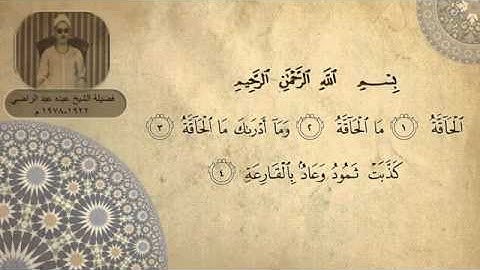 فضيلة الشيخ عبده عبد الراضي
١٩٢٢-١٩٧٨ م
بِسْمِ ٱللَّهِ ٱلرَّحْمَٰنِ ٱلرَّحِيمِ
ٱلْحَآقَّةُ ١ مَا ٱلْحَآقَّةُ ٢ وَمَآ أَدْرَىٰكَ مَا ٱلْحَآقَّةُ ٣
كَذَّبَتْ ثَمُودُ وَعَادٌۢ بِٱلْقَارِعَةِ ٤